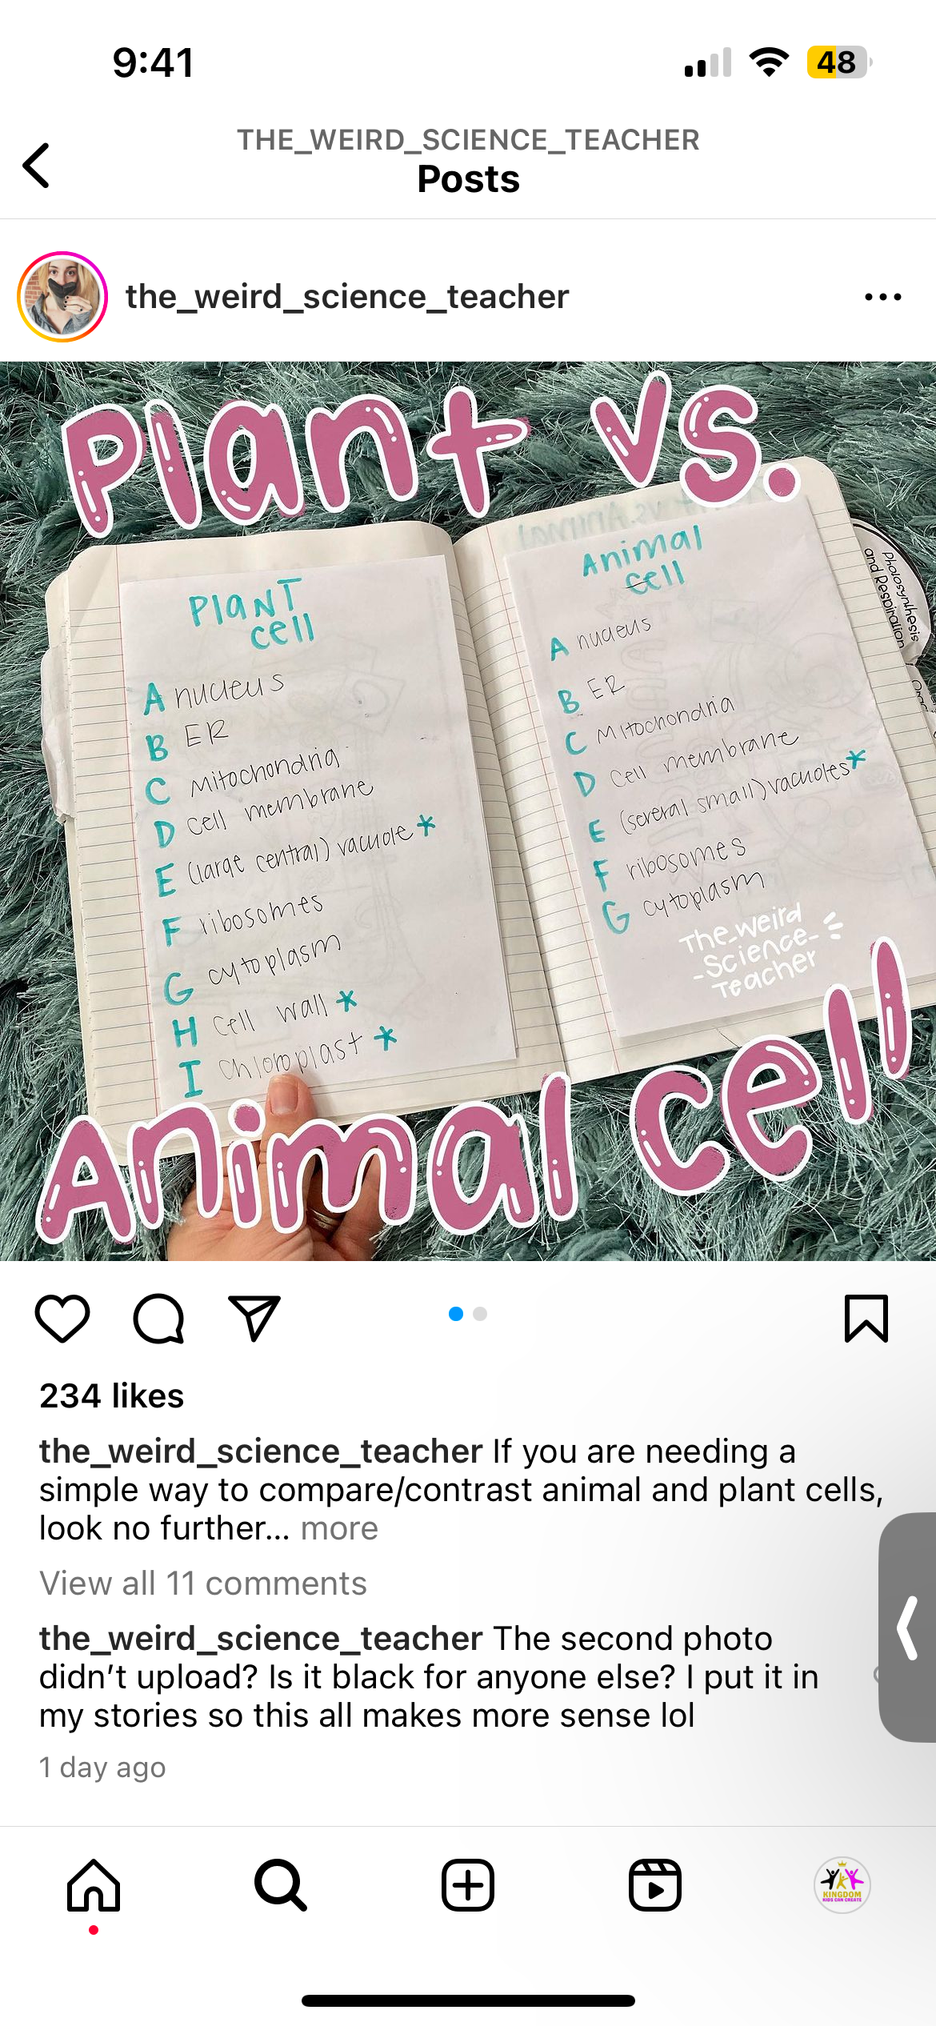 9:41
48
THE_WEIRD_SCIENCE_TEACHER
Posts
the_weird_science_teacher
Plant vs.
PLANT
cell
A nucleus
B ER
C Mitochondria
D cell membrane
E (large central) vacuole *
F ribosomes
G cytoplasm
H Cell wall *
I Chloroplast *
Animal
cell
A nucleus
B ER
C Mitochondria
D Cell membrane
E (several small) vacuoles *
F ribosomes
G cytoplasm
The_weird
_Science_
Teacher
Photosynthesis
and Respiration
Animal cell
234 likes
the_weird_science_teacher If you are needing a
simple way to compare/contrast animal and plant cells,
look no further... more
View all 11 comments
the_weird_science_teacher The second photo
didn't upload? Is it black for anyone else? I put it in
my stories so this all makes more sense lol
1 day ago
KINGDOM
KIDS CAN CREATE